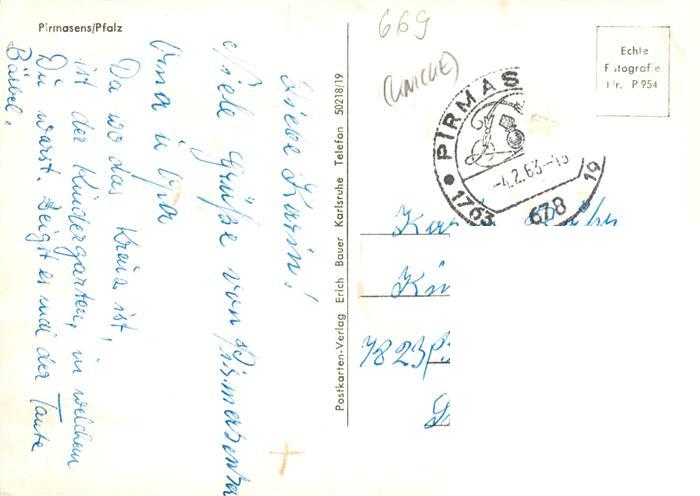 Pirmasens/Pfalz
Liebe Karin!
Viele Grüße von Pirmasens
Oma u Opa
Da wo das Kreuz ist,
ist der Kindergarten, in welchem
Du warst. Zeigst es mal der Tante
Bärbel.
Postkarten-Verlag Erich Bauer Karlsruhe Telefon 50218/19
669
(KNICKE)
Echte
Fotografie
Nr. P 954
PIRMAS
-4.2.63-19
1763 678 19
Ka
Ki
7823